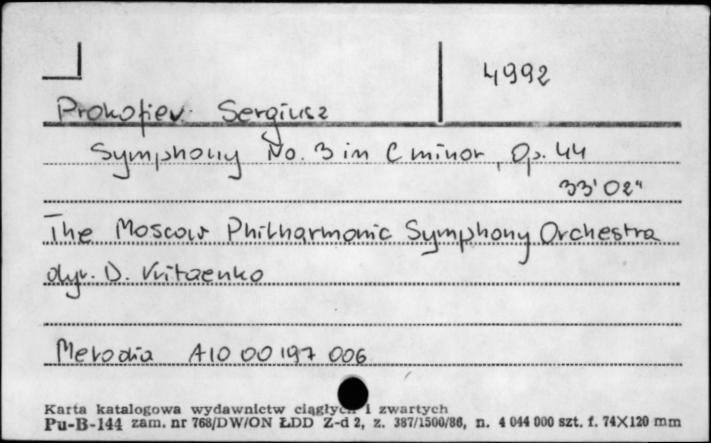 4992
Prokofiev Sergiusz
Symphony No. 3 in C minor, Op. 44
33'02"
The Moscow Philharmonic Symphony Orchestra
dyr. D. Kitaenko
Melodia A10 00197 006
Karta katalogowa wydawnictw ciągłych i zwartych
Pu-B-144 zam. nr 768/DW/ON ŁDD Z-d 2, z. 387/1500/86, n. 4 044 000 szt. f. 74X120 mm